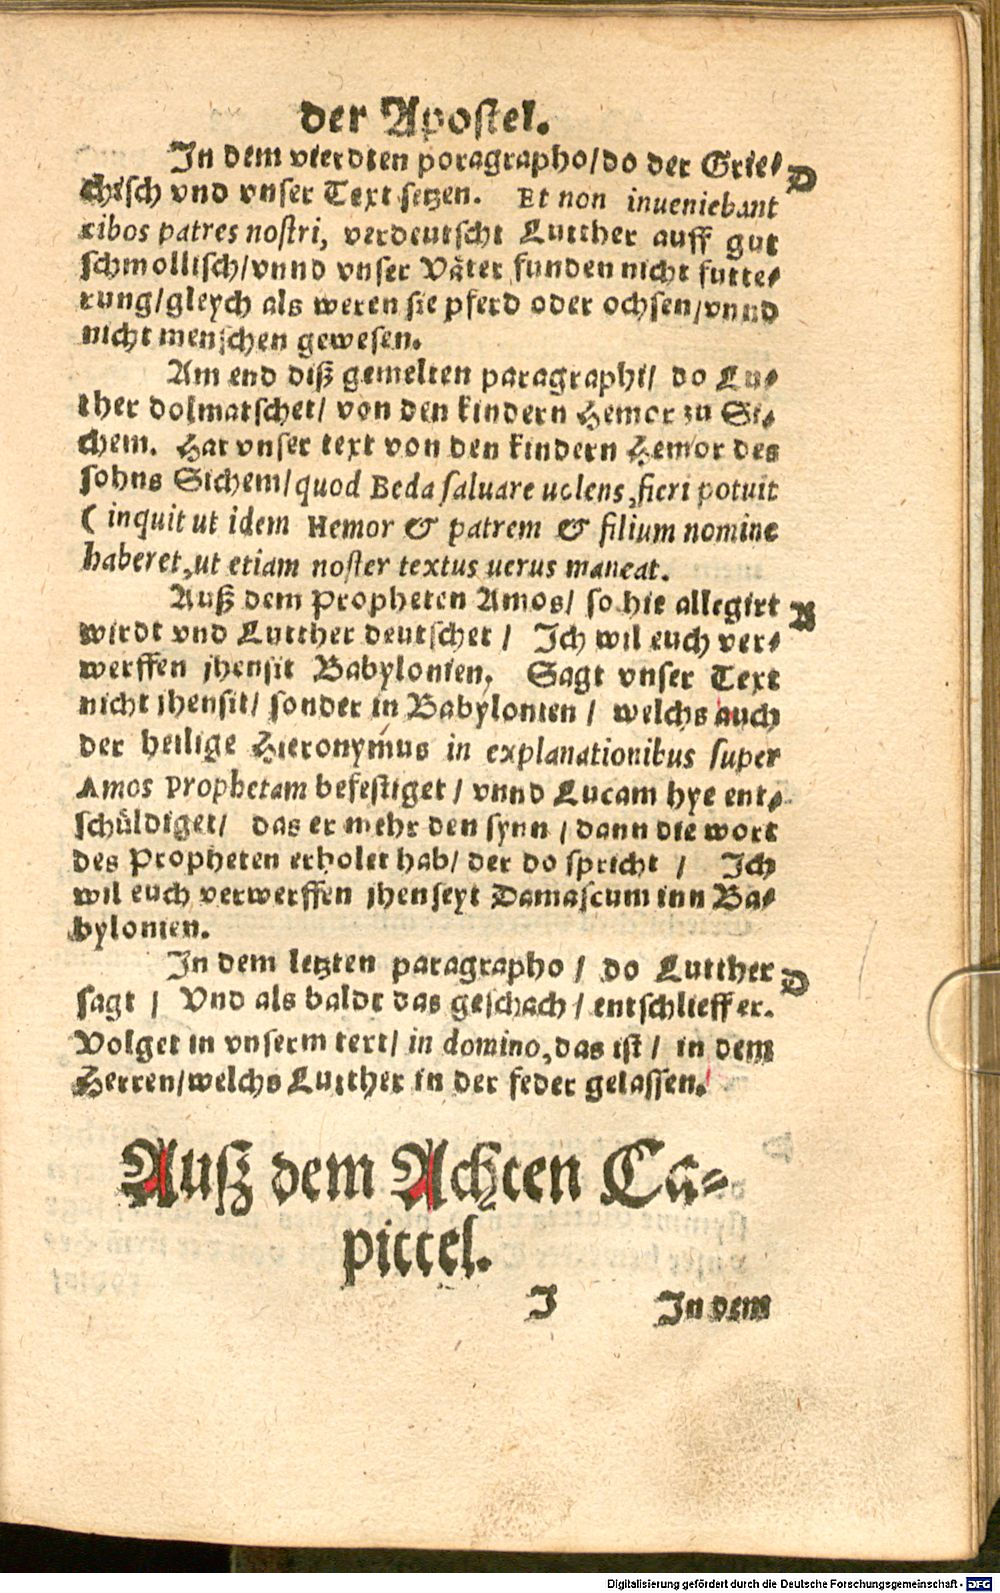 der Apostel.
In dem vierdten poragrapho/do der Grie- D
chisch vnd vnser Text setzen. Et non inueniebant
cibos patres nostri, verdeutscht Lutther auff gut
schmollisch/vnnd vnser Väter funden nicht futte-
rung/gleych als weren sie pferd oder ochsen/vnnd
nicht menschen gewesen.
Am end diß gemelten paragraphi/ do Lu-
ther dolmatschet/ von den kindern Hemor zu Si-
chem. Hat vnser text von den kindern Hemor des
sohns Sichem/quod Beda saluare uolens, fieri potuit
( inquit ut idem Hemor & patrem & filium nomine
haberet, ut etiam noster textus uerus maneat.
Auß dem Propheten Amos/ so hie allegirt B
wirdt vnd Lutther deutschet / Ich wil euch ver-
werffen jhensit Babylonien, Sagt vnser Text
nicht jhensit/ sonder in Babylonien / welchs auch
der heilige Hieronymus in explanationibus super
Amos Prophetam befestiget / vnnd Lucam hye ent-
schüldiget/ das er mehr den synn / dann die wort
des Propheten erholet hab/ der do spricht / Ich
wil euch verwerffen jhenseyt Damascum inn Ba-
bylonien.
In dem letzten paragrapho / do Lutther D
sagt / Vnd als baldt das geschach / entschlieff er.
Volget in vnserm text/ in domino, das ist / in dem
Herren/welchs Lutther in der feder gelassen.
Auß dem Achten Ca-
pittel.
J In dem
Digitalisierung gefördert durch die Deutsche Forschungsgemeinschaft - DFG